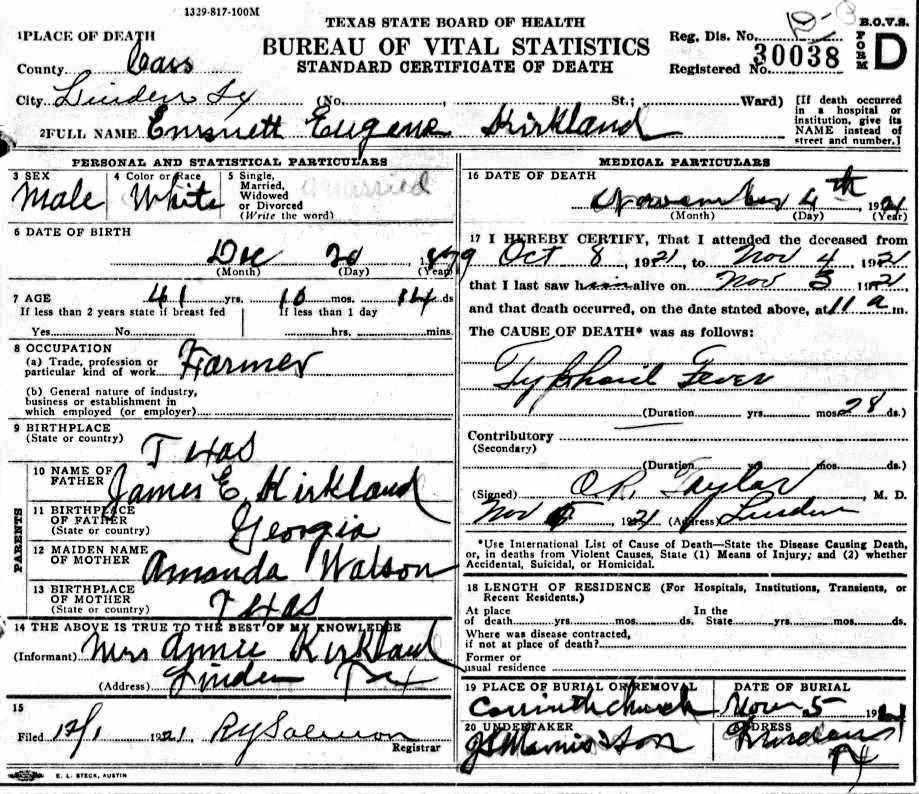 1329-817-100M
TEXAS STATE BOARD OF HEALTH
BUREAU OF VITAL STATISTICS
STANDARD CERTIFICATE OF DEATH
Reg. Dis. No.
Registered No. 30038
B.O.V.S.
FORM D
1 PLACE OF DEATH
County Cass
City Linden Tx (No. , St.; Ward)
[If death occurred in a hospital or institution, give its NAME instead of street and number.]
2 FULL NAME Emmett Eugene Kirkland
PERSONAL AND STATISTICAL PARTICULARS
3 SEX Male
4 Color or Race White
5 Single, Married, Widowed or Divorced (Write the word) Married
6 DATE OF BIRTH
Dec 20 1879
(Month) (Day) (Year)
7 AGE 41 yrs. 10 mos. 14 ds
If less than 2 years state if breast fed Yes No
If less than 1 day hrs. mins.
8 OCCUPATION
(a) Trade, profession or particular kind of work Farmer
(b) General nature of industry, business or establishment in which employed (or employer)
9 BIRTHPLACE
(State or country) Texas
PARENTS
10 NAME OF FATHER James E. Kirkland
11 BIRTHPLACE OF FATHER (State or country) Georgia
12 MAIDEN NAME OF MOTHER Amanda Watson
13 BIRTHPLACE OF MOTHER (State or country) Texas
14 THE ABOVE IS TRUE TO THE BEST OF MY KNOWLEDGE
(Informant) Mrs Annie Kirkland
(Address) Linden Tex
15
Filed 12/1 1921 Registrar
E. L. STECK, AUSTIN
MEDICAL PARTICULARS
16 DATE OF DEATH
November 4th 1921
(Month) (Day) (Year)
17 I HEREBY CERTIFY, That I attended the deceased from
Oct 8, 1921, to Nov 4, 1921
that I last saw him alive on Nov 3 1921
and that death occurred, on the date stated above, at 11 a m.
The CAUSE OF DEATH* was as follows:
Typhoid Fever
(Duration yrs. mos. 28 ds.)
Contributory
(Secondary)
(Duration yrs. mos. ds.)
(Signed) O.R. Taylor, M. D.
Nov 5, 1921 (Address) Linden
*Use International List of Cause of Death—State the Disease Causing Death, or, in deaths from Violent Causes, State (1) Means of Injury; and (2) whether Accidental, Suicidal, or Homicidal.
18 LENGTH OF RESIDENCE (For Hospitals, Institutions, Transients, or Recent Residents.)
At place of death yrs. mos. ds. In the State yrs. mos. ds.
Where was disease contracted, if not at place of death?
Former or usual residence
19 PLACE OF BURIAL OR REMOVAL
Corinth Church
DATE OF BURIAL
Nov 5 1921
20 UNDERTAKER
& Son
ADDRESS
Linden